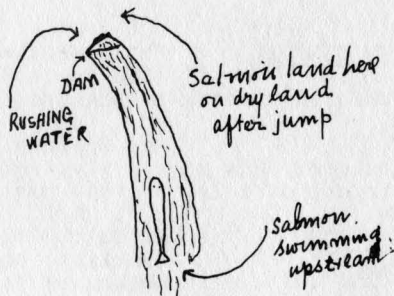 DAM
RUSHING
WATER
Salmon land here
on dry land
after jump
Salmon
swimming
upstream